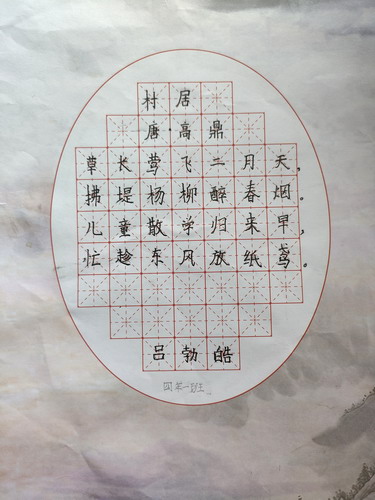 村居
唐·高鼎
草长莺飞二月天，
拂堤杨柳醉春烟。
儿童散学归来早，
忙趁东风放纸鸢。
吕勃皓
四年一班